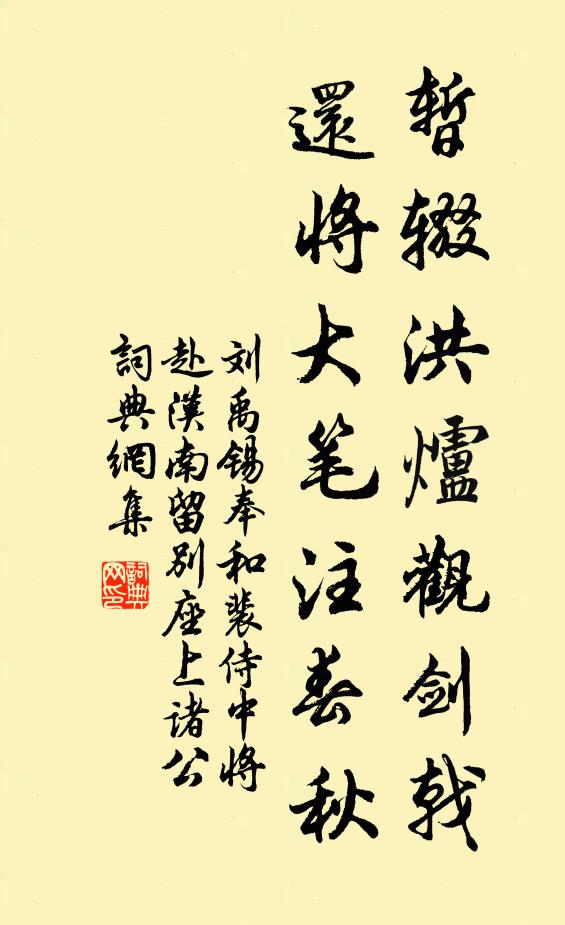 暫辍洪爐觀剑戟
還將大笔注春秋
刘禹锡奉和裴侍中将
赴漢南留别座上诸公
詞典網集
詞典网印